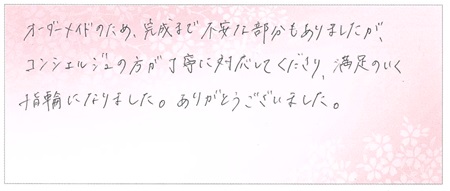 オーダーメイドのため、完成まで不安な部分もありましたが、
コンシェルジュの方が丁寧に対応してくださり、満足のいく
指輪になりました。ありがとうございました。